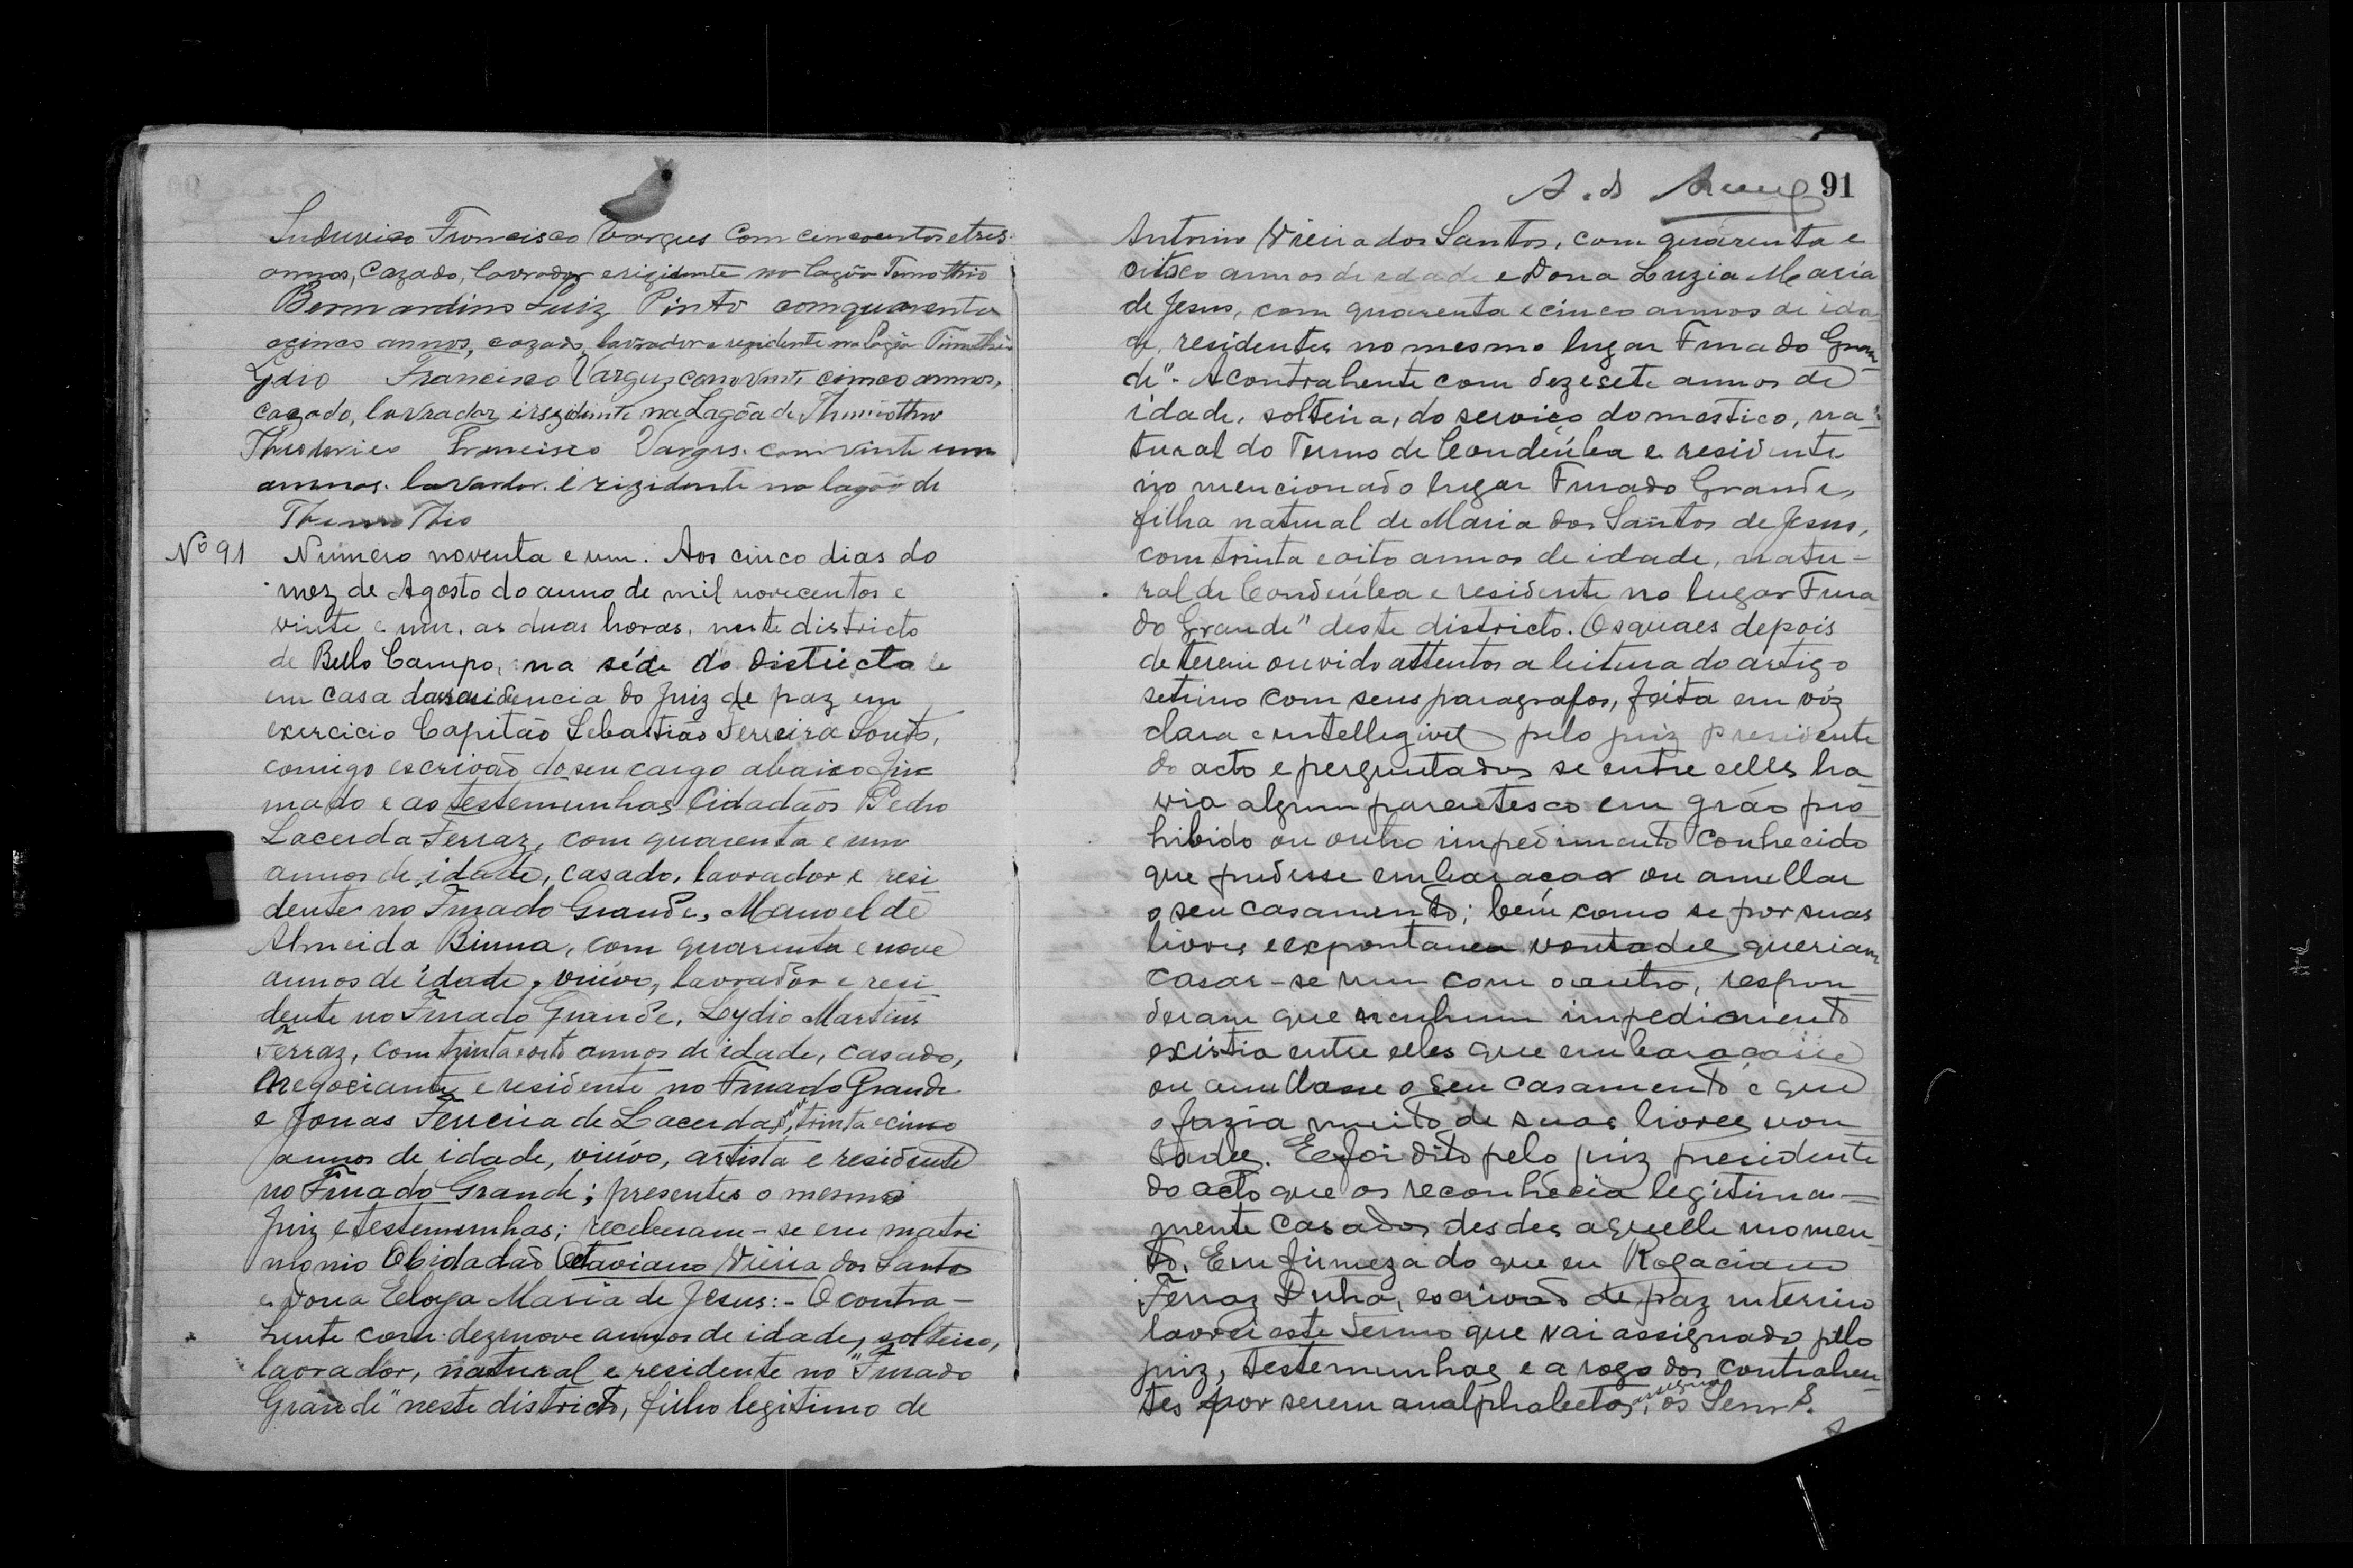 Luduvico Francisco Vargues com cincoenta e tres
annos, Cazado, lavrador e rizidente na lagôa Temothio
Bernnardino Luiz Pinto com quarenta
e cinco annos, cazado, lavrador e rezidente na Lagôa Timothio
Lydio Francisco Vargues com vinte cinco annos,
cazado, lavrador, e rezidente na Lagôa de Themothio
Theodorico Francisco Vargas com vinte um
annos. lavrador. e rizidente na lagôa de
Themothio
Nº 91 Numero noventa e um. Aos cinco dias do
mez de Agosto do anno de mil novecentos e
vinte e um, as duas horas, neste districto
de Bello Campo, na séde do Districto e
em casa da residencia do Juiz de paz em
exercicio Capitão Sebastião Ferreira Souto,
comigo escrivão do seu cargo abaixo fir
mado e as testemunhas Cidadãos Pedro
Lacerda Ferraz, com quarenta e um
annos de idade, casado, lavrador e resi
dente no Furado Grande, Manoel de
Almeida Binna, com quarenta e nove
annos de idade, viuvo, lavrador e resi
dente no Furado Grande, Lydio Martins
Ferraz, com trinta e oito annos de idade, casado,
negociante e residente no Furado Grande
e Jonas Ferreira de Lacerda, com trinta e cinco
annos de idade, viuvo, artista e residente
no Furado Grande; presentes o mesmo
Juiz e testemunhas; receberam-se em matri
monio O Cidadão Octaviano Vieira dos Santos
e Dona Eloya Maria de Jesus:- O contra-
hente com dezenove annos de idade, solteiro,
lavrador, natural e residente no "Furado
Grande" neste districto, filho legitimo de
A. d 91
Antonio Vieira dos Santos, com quarenta e
oito annos de edade e Dona Luzia Maria
de Jesus, com quarenta e cinco annos de ida
de, residentes no mesmo lugar Furado Gran
de". A contrahente com dezesete annos de
idade, solteira, do serviço domestico, na
tural do Termo de Condeúba e residente
no mencionado lugar Furado Grande,
filha natural de Maria dos Santos de Jesus,
com trinta e oito annos de idade, natu-
ral de Condeúba e residente no lugar Fura
do Grande" deste districto. Os quaes depois
de terem ouvido attentos a leitura do artigo
setimo com seus paragrafos, feita em vóz
clara e intellegivel pelo juiz presidente
do acto e perguntados se entre elles ha
via algum parentesco em gráo pro
hibido ou outro impedimento conhecido
que pudesse embaraçar ou anullar
o seu casamento; bem como se por suas
livres e expontanea vontade queriam
casar-se um com o outro, respon
deram que nenhum impedimento
existia entre elles que embaraçasse
ou anullasse o seu casamento e que
o fazia muito de suas livres von
tades. E foi dito pelo juiz presidente
do acto que os reconhecia legitima-
mente casados desdes aquelle momen
to. Em firmeza do que eu Rogaciano
Ferraz Dutra, escrivão de paz interino
lavrei este termo que vai assignado pelo
juiz, testemunhas e a rogo dos contrahen
tes por serem analphabetos, assigna os Senrs.